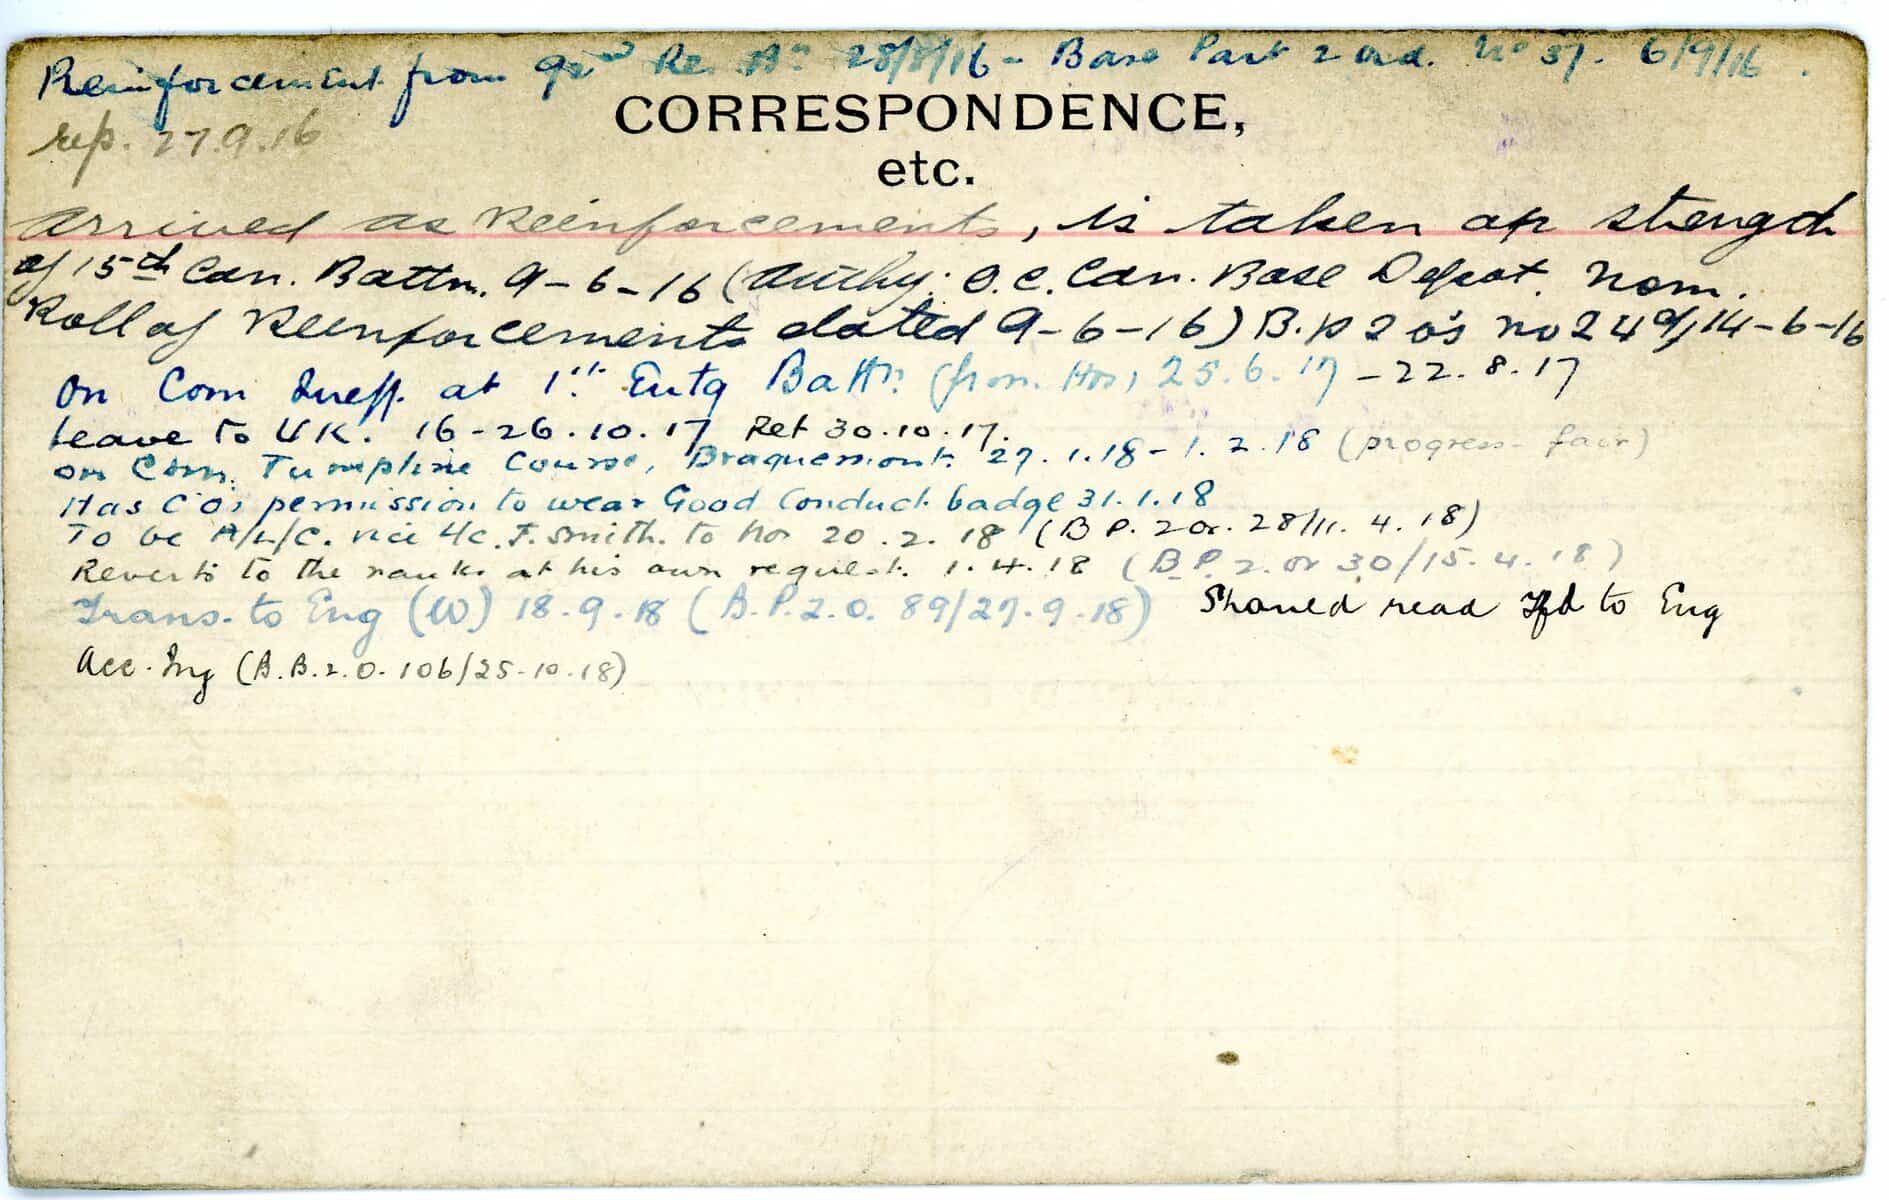 Reinforcement from 92nd Re. Bn 28/8/16 - Base Part 2 Ord. No 37. 6/9/16.
CORRESPONDENCE,
rep. 27.9.16
etc.
Arrived as Reinforcements, is taken on strength
of 15th Can. Battn. 9-6-16 (Authy: O.C. Can. Base Depot. Nom.
Roll of Reinforcements dated 9-6-16) B.p 2 o's no 24 of 14-6-16
On Com at 1st Entg Battn (from Hos) 25.6.17 - 22.8.17
Leave to UK. 16-26.10.17 Ret 30.10.17.
on Com. Tumpline Course, Braquemont. 27.1.18 - 1.2.18 (progress - fair)
Has C O's permission to wear Good Conduct badge 31.1.18
To be A/L/C. vice L/c. F. Smith. to Hos 20.2.18 (B P. 2 Or. 28/11.4.18)
Reverts to the ranks at his own request. 1.4.18 (B.P. 2. Or 30/15.4.18)
Trans. to Eng (W) 18.9.18 (B.P.2.O. 89/27.9.18) Should read Tfd to Eng
Acc. Inj (B.B.2.O. 106/25-10-18)